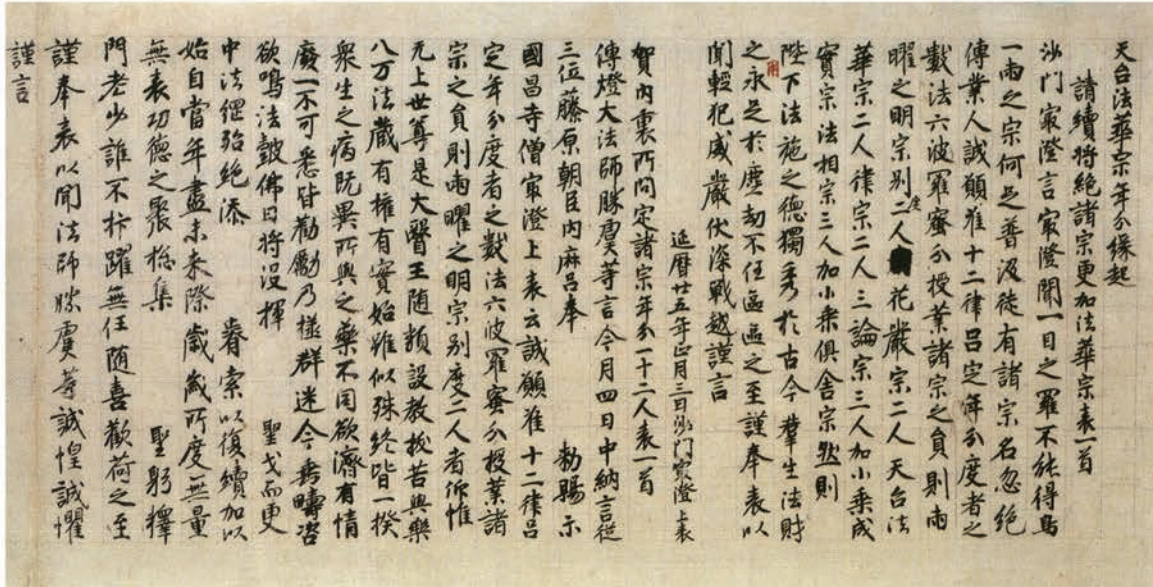 天台法華宗年分縁起
請續將絶諸宗更加法華宗表一首
沙門冣澄言冣澄聞一目之羅不能得鳥
一兩之宗何足普汲徒有諸宗名忽絶
傳業人誠願准十二律呂定年分度者之
數法六波羅蜜分授業諸宗之員則兩
曜之明宗別度二人花嚴宗二人天台法
華宗二人律宗二人三論宗三人加小乗成
實宗法相宗三人加小乗俱舎宗然則
陛下法施之德獨秀於古今羣生法財
之永足於塵劫不任區區之至謹奉表以
聞輕犯威嚴伏深戰越謹言
延曆廿五年正月三日沙門冣澄上表
賀内裏所問定諸宗年分一十二人表一首
傳燈大法師勝虞等言今月四日中納言從
三位藤原朝臣内麻呂奉 勅賜示
國昌寺僧冣澄上表云誠願准十二律呂
定年分度者之數法六波羅蜜分授業諸
宗之員則兩曜之明宗別度二人者仰惟
无上世尊是大醫王随類設教拔苦與樂
八万法蔵有權有實始雖似殊終皆一揆
衆生之病既異所與之藥不同欲濟有情
廢一不可悉皆勸勵乃拯群迷今垂疇咨
欲鳴法皷佛日將没揮 聖戈而更
中法綱殆絶添 睿索以復續加以
始自當年盡未来際歳歳所度無量
無表功德之聚揔集 聖躬釋
門老少誰不抃躍無任随喜歡荷之至
謹奉表以聞法師勝虞等誠惶誠懼
謹言